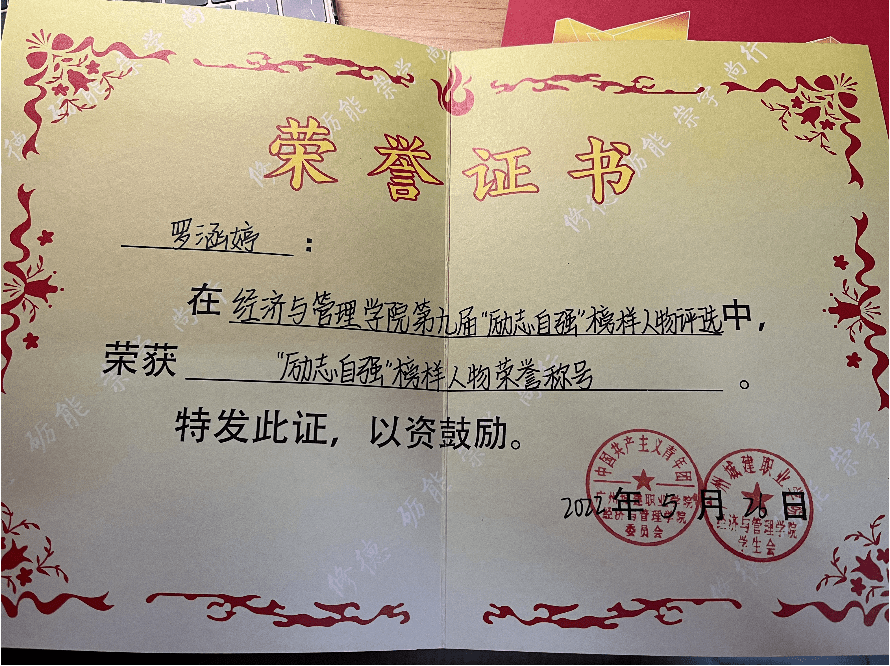 荣誉证书
罗涵婷：
在 经济与管理学院第九届“励志自强”榜样人物评选中，
荣获 “励志自强”榜样人物荣誉称号。
特发此证，以资鼓励。
2022年5月26日
中国共产主义青年团
广州城建职业学院
经济与管理学院
委员会
广州城建职业学院
经济与管理学院
学生会
修德 砺能 崇学 尚行